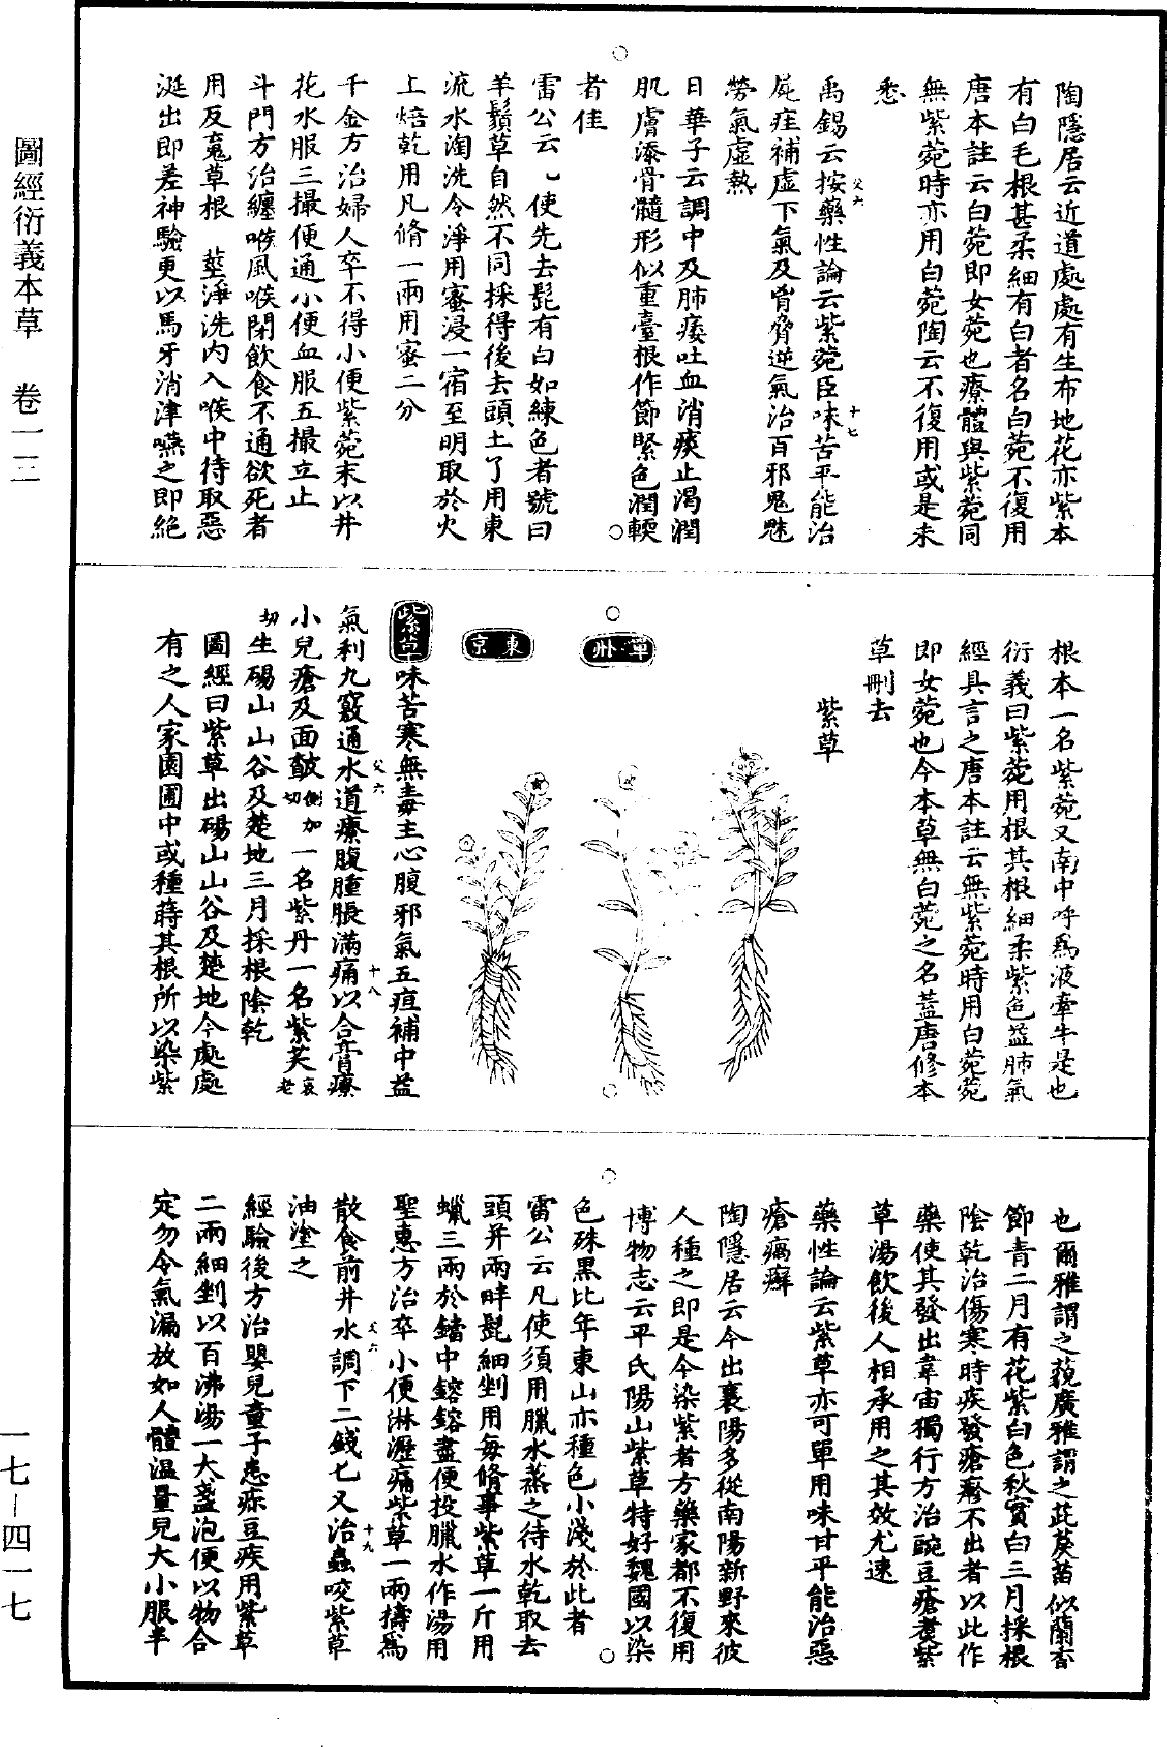 圖經衍義本草　卷一二
陶隱居云近道處處有生布地花亦紫本
有白毛根甚柔細有白者名白菀不復用
唐本註云白菀即女菀也療體與紫菀同
無紫菀時亦用白菀陶云不復用或是未
悉
禹錫云按藥性論云紫菀臣味苦平能治
尸疰補虛下氣及胷脅逆氣治百邪鬼魅
勞氣虛熱
日華子云調中及肺痿吐血消痰止渴潤
肌膚添骨髓形似重臺根作節緊色潤軟
者佳
雷公云凡使先去髭有白如練色者號曰
羊鬚草自然不同採得後去頭土了用東
流水淘洗令淨用蜜浸一宿至明取於火
上焙乾用凡脩一兩用蜜二分
千金方治婦人卒不得小便紫菀末以井
花水服三撮便通小便血服五撮立止
斗門方治纏喉風喉閉飲食不通欲死者
用反魂草根　莖淨洗內入喉中待取惡
涎出即差神驗更以馬牙消津嚥之即絕
根本一名紫菀又南中呼爲液牽牛是也
衍義曰紫菀用根其根細柔紫色益肺氣
經具言之唐本註云無紫菀時用白菀菀
即女菀也今本草無白菀之名蓋唐修本
草刪去
紫草
單州
東京
紫草味苦寒無毒主心腹邪氣五疸補中益
氣利九竅通水道療腹腫脹滿痛以合膏療
小兒瘡及面皻側加切一名紫丹一名紫芺哀老
切生碭山山谷及楚地三月採根陰乾
圖經曰紫草出碭山山谷及楚地今處處
有之人家園圃中或種蒔其根所以染紫
也爾雅謂之藐廣雅謂之茈䓞苗似蘭香
節青二月有花紫白色秋實白三月採根
陰乾治傷寒時疾發瘡疹不出者以此作
藥使其發出韋宙獨行方治豌豆瘡煑紫
草湯飲後人相承用之其效尤速
藥性論云紫草亦可單用味甘平能治惡
瘡瘑癬
陶隱居云今出襄陽多從南陽新野來彼
人種之即是今染紫者方藥家都不復用
博物志云平氏陽山紫草特好魏國以染
色殊黒比年東山亦種色小淺於此者
雷公云凡使須用臘水蒸之待水乾取去
頭并兩畔髭細剉用每脩事紫草一斤用
蠟三兩於鐺中鎔鎔盡便投臘水作湯用
聖惠方治卒小便淋瀝痛紫草一兩擣爲
散食前井水調下二錢匕又治蟲咬紫草
油塗之
經驗後方治嬰兒童子患疹豆疾用紫草
二兩細剉以百沸湯一大盞泡便以物合
定勿令氣漏放如人體溫量兒大小服半
一七—四一七